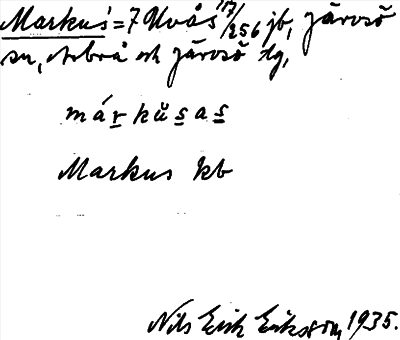 Markus = 7 Uvås 117/256 jb, Järvsö
sn, Arbrå och Järvsö tg,
márkŭsas
Markus kb
Nils Erik Eriksson, 1935.